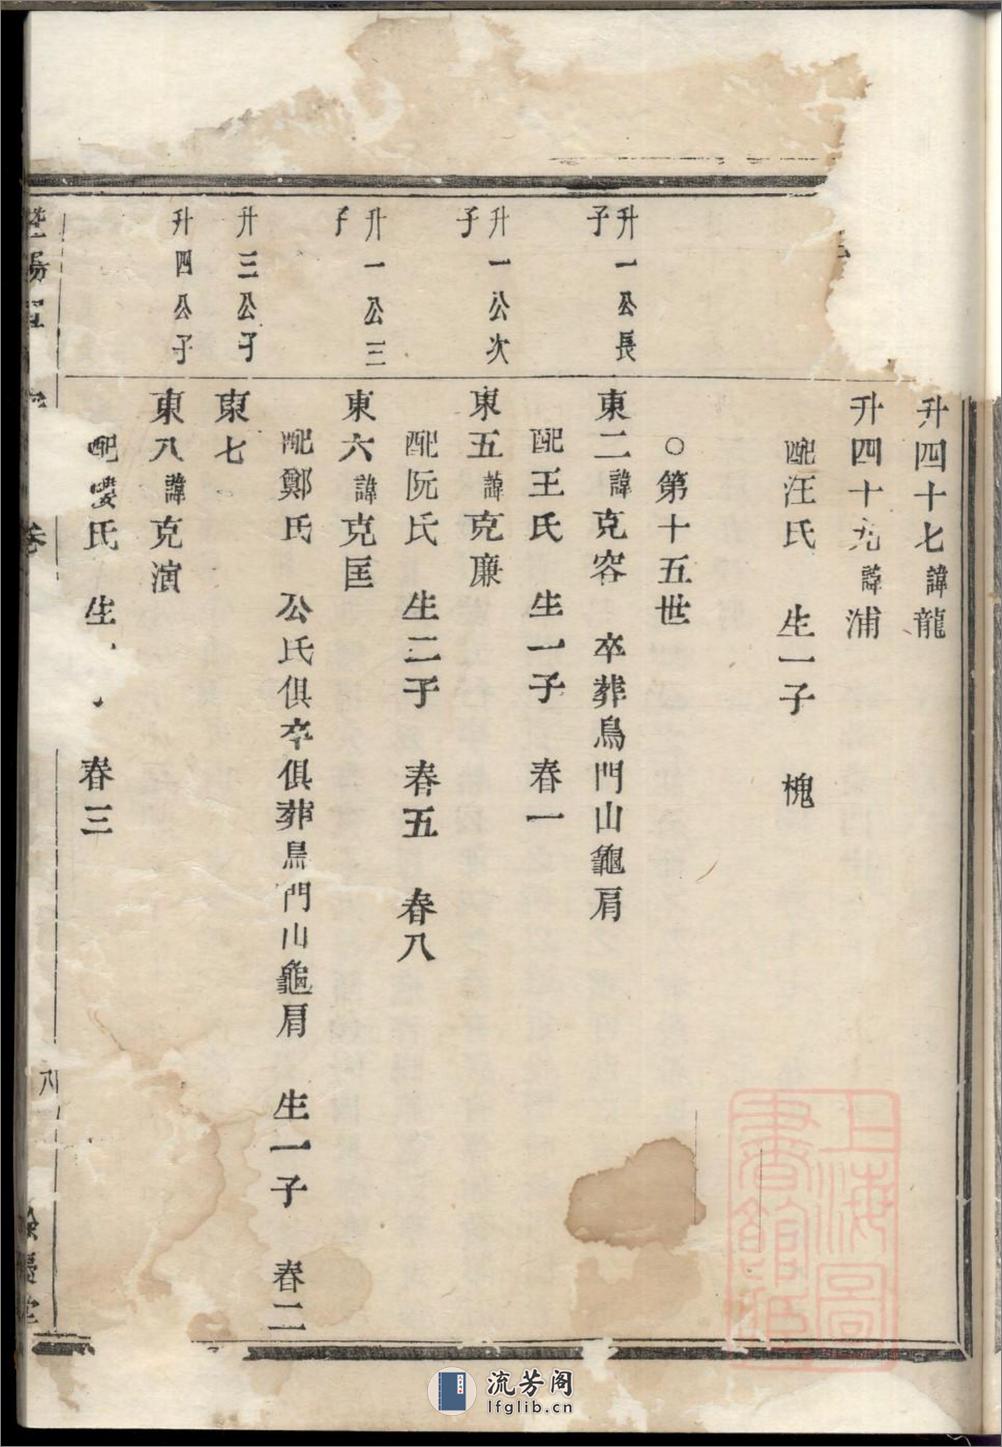 升四十七諱龍
升四十九諱浦
配汪氏 生一子 槐
○第十五世
升一公長子
東二諱克容 卒葬鳥門山龜肩
配王氏 生一子 春一
升一公次子
東五諱克廉
配阮氏 生二子 春五 春八
升一公三子
東六諱克匡
配鄭氏 公氏俱卒俱葬鳥門山龜肩 生一子 春二
升三公子
東七
升四公子
東八諱克演
配婁氏 生 春三
卷 八
上海圖書館藏
流芳阁
lfglib.cn